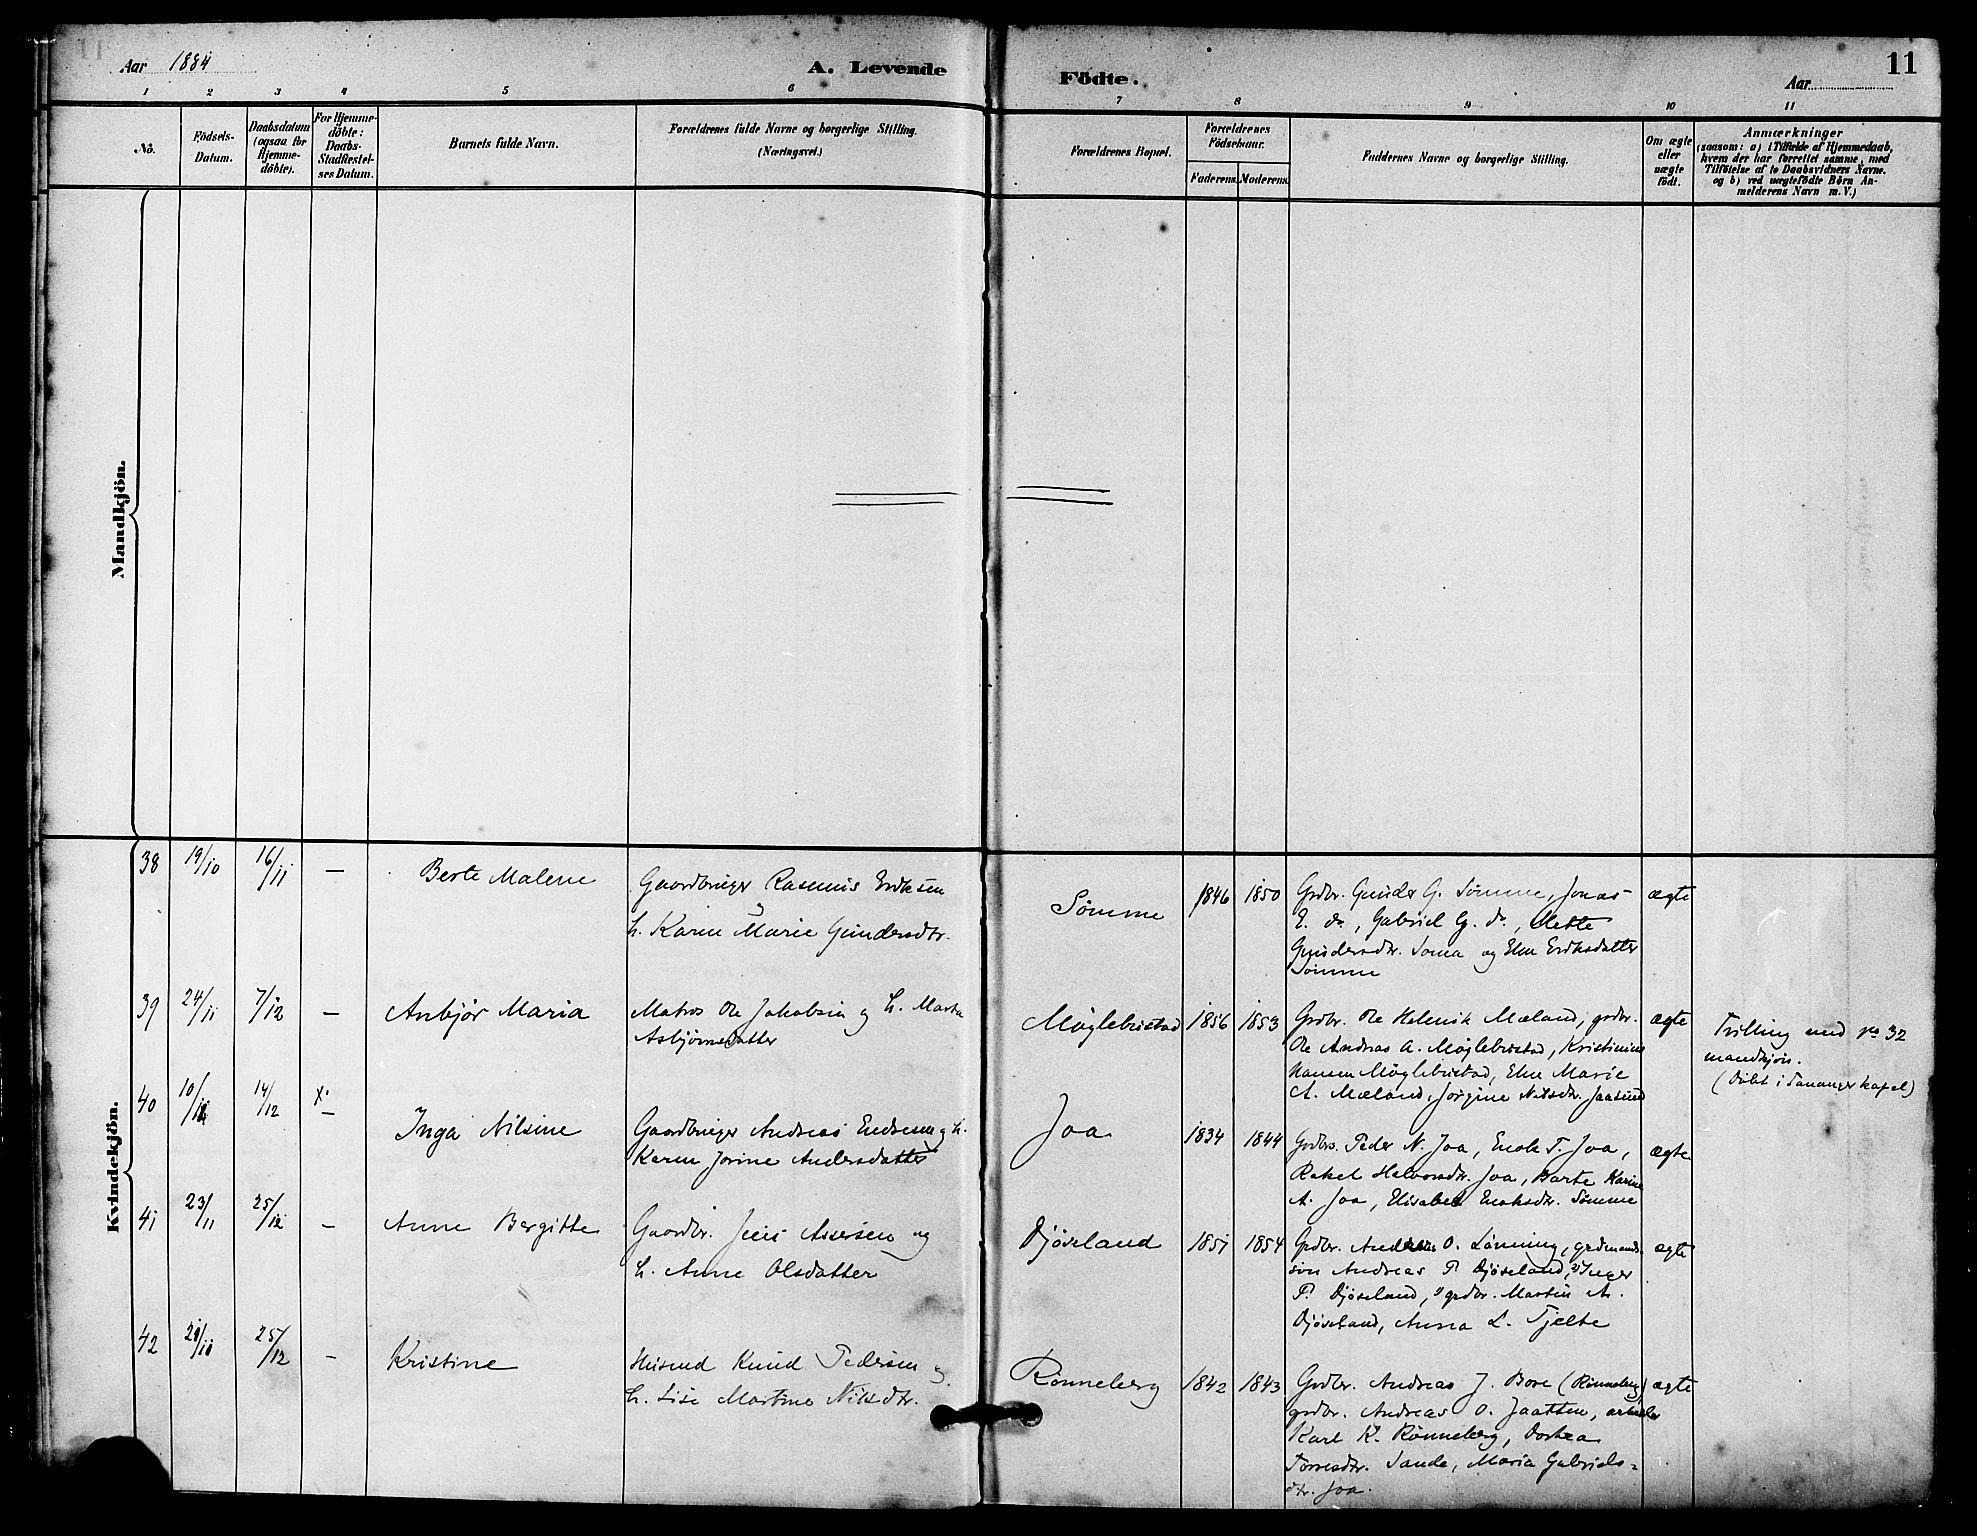 Aar 1884
A. Levende
Födte.
Aar
11
1 2 3 4 5 6 7 8 9 10 11
No.
Födsels-
Datum.
Daabsdatum
(ogsaa for
Hjemme-
döbte).
For Hjemme-
döbte:
Daabs-
Stadfæstel-
ses Datum.
Barnets fulde Navn.
Forældrenes fulde Navne og borgerlige Stilling.
(Næringsvei.)
Forældrenes Bopæl.
Forældrenes
Födselsaar.
Faderens.
Moderens.
Faddernes Navne og borgerlige Stilling.
Om ægte
eller
uægte
födt.
Anmærkninger
(saasom: a) i Tilfælde af Hjemmedaab,
hvem der har forrettet samme, med
Tilföielse af to Daabsvidners Navne.
og b) ved uægtefödte Börn An-
melderens Navn m. V.)
Mandkjön.
Kvindekjön.
38
19/10
16/11
—
Berte Malene
Gaardbruger Rasmus Eriksen
og
h. Karen Marie Gundersdtr.
Sömme
1846
1850
Grdbr. Gunder G. Sömme, Jonas
E. do, Gabriel G. do, Mette
Gundersdtr. Soma og Elen Eriksdatter
Sömme
ægte
39
24/11
7/12
—
Anbjör Maria
Matros Ole Jakobsen og h. Marta
Asbjörnsdatter
Möglebustad
1856
1853
Grdbr. Ole Helmik Mæland, grdbr.
Ole Andreas A. Möglebustad, Kristinius
Hansen Möglebustad, Elen Marie
A. Mæland, Jörgine Nilsdtr. Jaasund
ægte
Tvilling med no 32
mandkjön.
(Döbt i Tananger kapel)
40
14/12
x.
—
Inga Nilsine
Gaardbruger Andreas Endresen og h.
Karen Jorine Andersdatter
Joa
1834
1844
Grdbr. Peder N. Joa, Enok T. Joa,
Rakel Halvorsdtr. Joa, Barte Karine
A. Joa, Elisabet Enoksdtr. Sömme
ægte
41
23/11
25/12
—
Anne Bergitte
Gaardbr. Jens Assersen og
h. Anne Olsdatter
Djöseland
1851
1854
Grdbr. Andreas O. Lönning, grdmands-
sön Andreas P. Djöseland, Inger
P. Djöseland, grdbr. Martin A.
Djöseland, Anna L. Tjelte
ægte
42
25/12
—
Kristine
Husmd Knud Pedersen og
h. Lise Martine Nilsdtr.
Rönneberg
1842
1843
Grdbr. Andreas J. Bore (Rönneberg)
grdbr. Andreas O. Jaatten, arbeider
Karl K. Rönneberg, Dortea
Torresdtr. Sande, Maria Gabriels-
dtr. Joa.
ægte